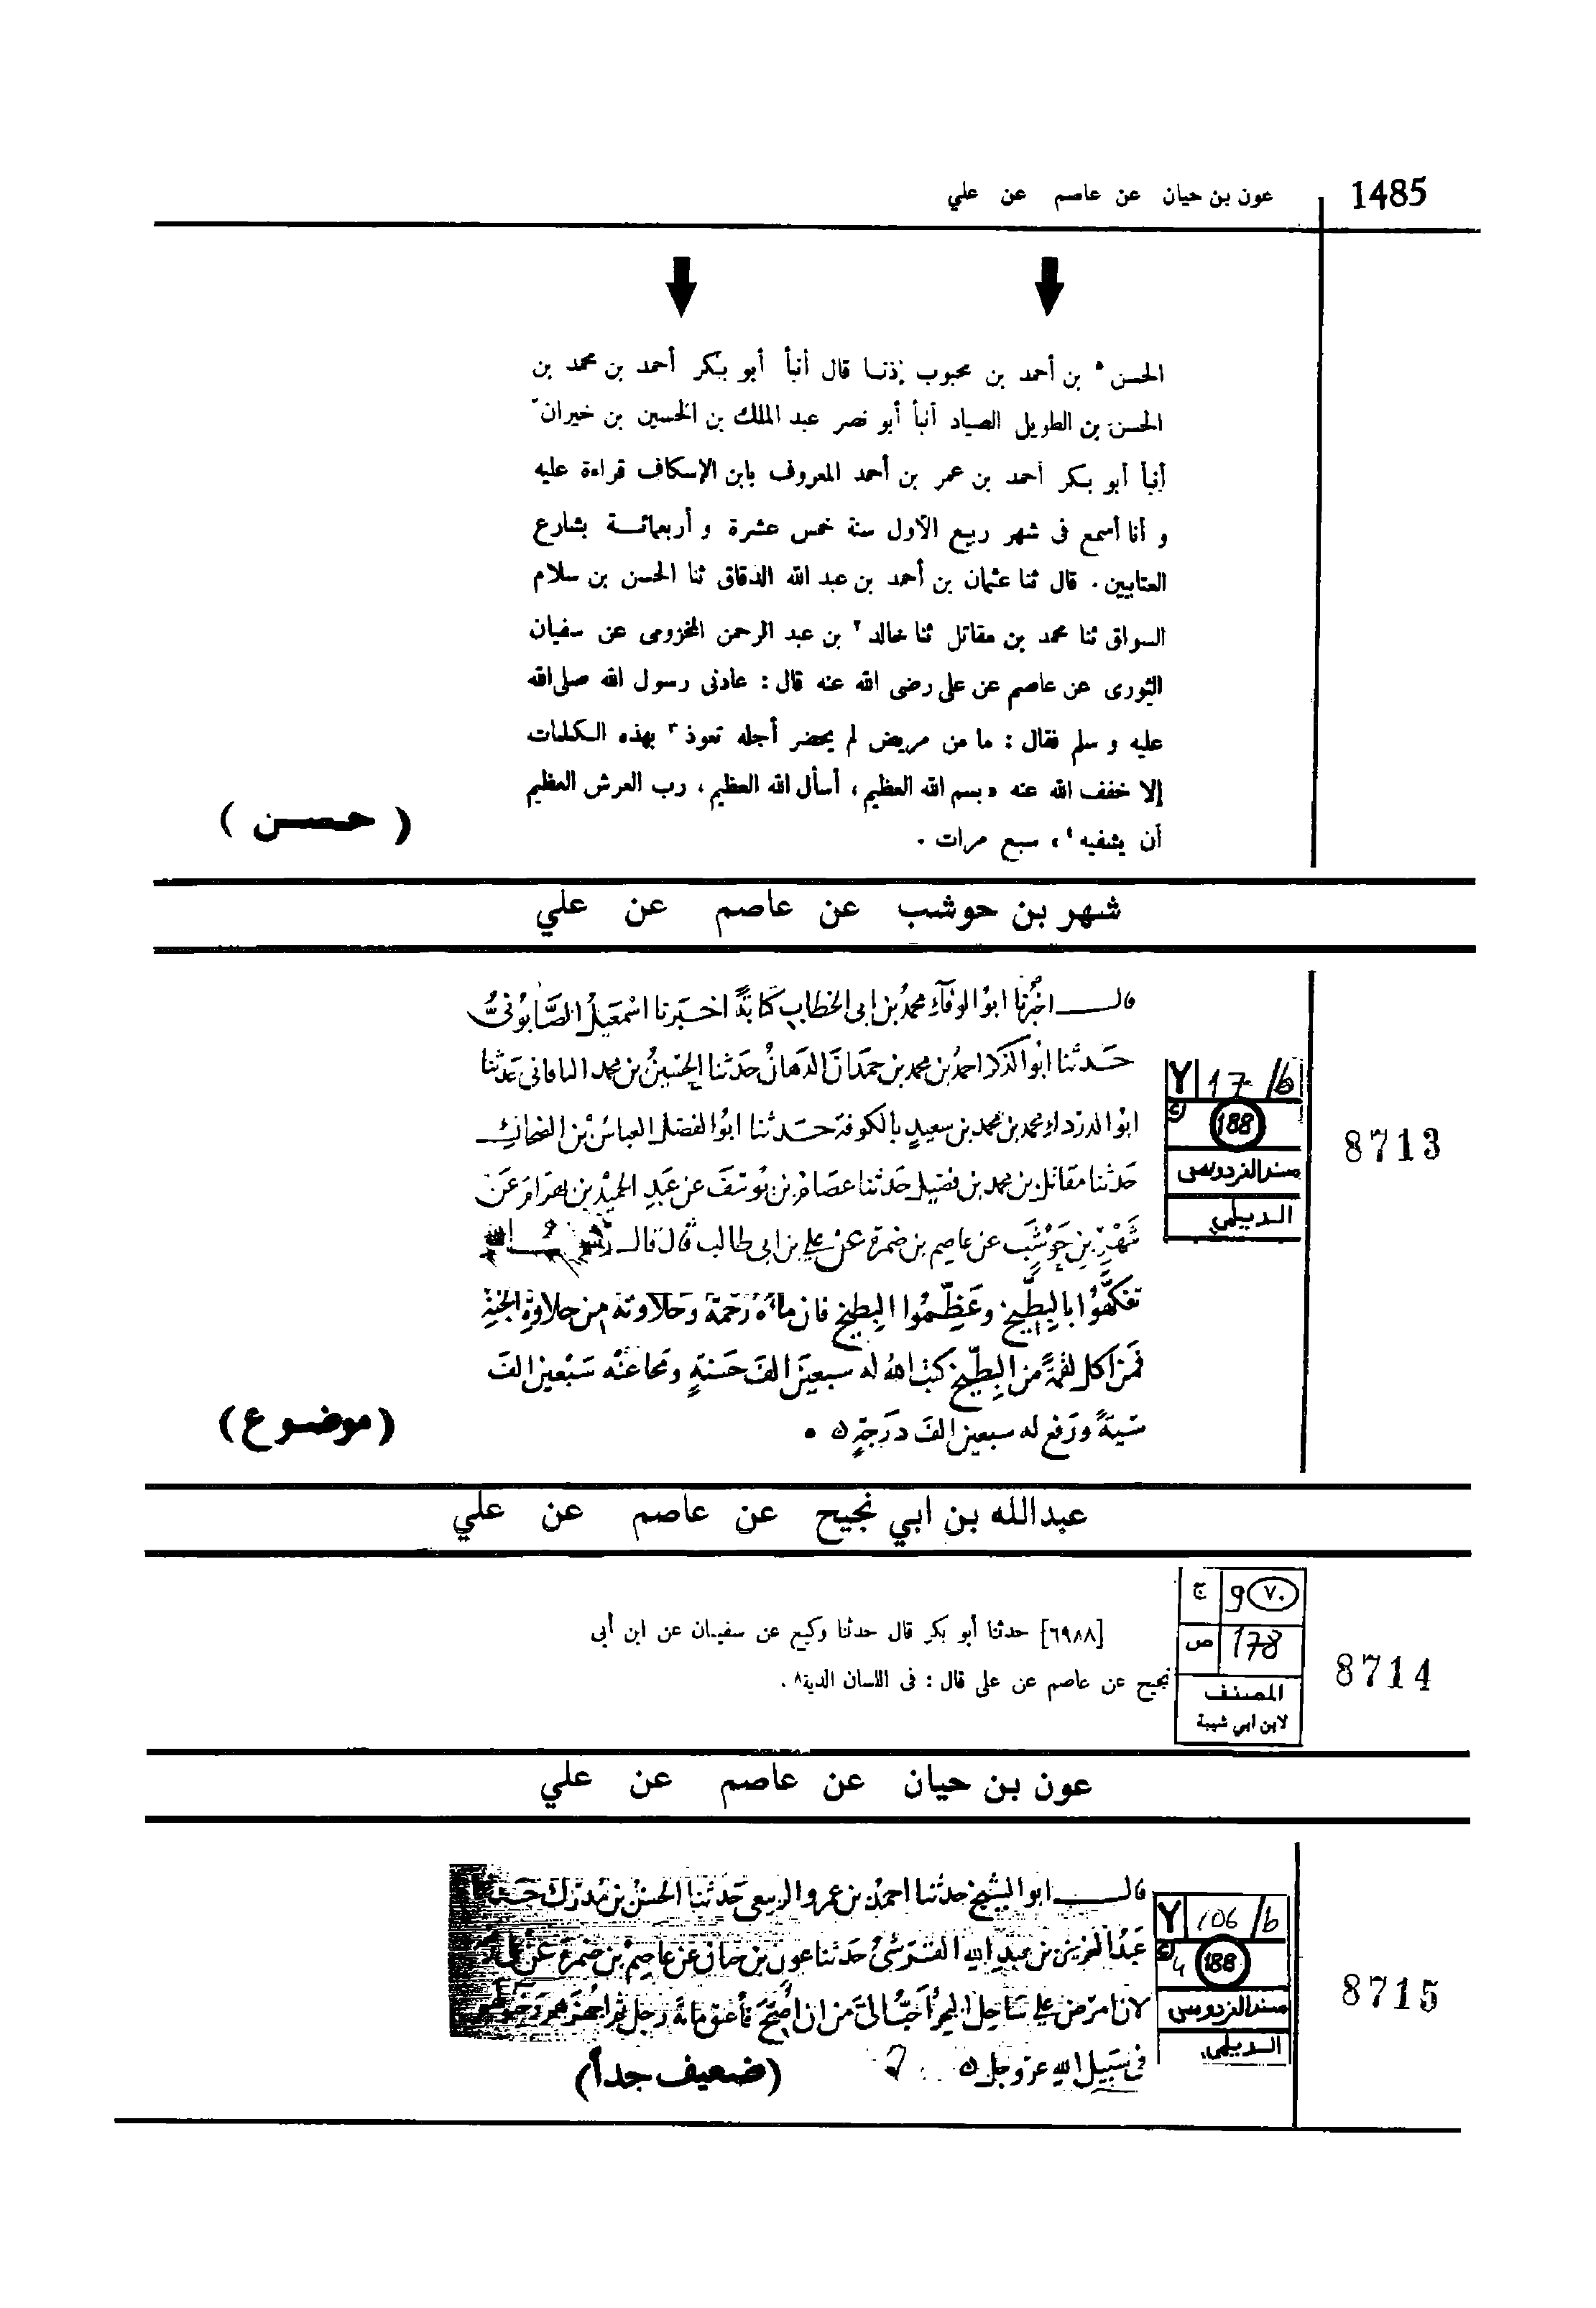 1485
عون بن حيان عن عاصم عن علي
الحسن ° بن أحمد بن محبوب إذنا قال أنبأ أبو بكر أحمد بن محمد بن
الحسن بن الطويل الصياد أنبأ أبو نصر عبد الملك بن الحسين بن خيران
أنبأ أبو بكر أحمد بن عمر بن أحمد المعروف بابن الإسكاف قراءة عليه
و أنا أسمع فى شهر ربيع الأول سنة خمس عشرة و أربعمائة بشارع
العتابيين . قال ثنا عثمان بن أحمد بن عبد الله الدقاق ثنا الحسن بن سلام
السواق ثنا محمد بن مقاتل ثنا خالد ٢ بن عبد الرحمن المخزومى عن سفيان
الثورى عن عاصم عن على رضى الله عنه قال : عادنى رسول الله صلى الله
عليه و سلم فقال : ما من مريض لم يحضر أجله تعوذ ٣ بهذه الكلمات
إلا خفف الله عنه « بسم الله العظيم ، أسأل الله العظيم ، رب العرش العظيم
أن يشفيه ٤ ، سبع مرات .
( حسن )
شهر بن حوشب عن عاصم عن علي
قال اخبرنا ابوُ الوفآء محمدُ بن ابى الخطاب كتابةً اخبرنا اسمعيلُ الصَّابونىُّ
حدثنا ابوُ احمدُ بن محمد بن حمدَان الدهانُ حدثنا الحسينُ بن محمد حدثنا
ابوُ الدرداءِ محمد بن محمد بن سعيدٍ بالكوفة حدثنا ابوُ الفضل العباسُ بن الضحاكِ
حَدثنا مقاتل بن محمد بن فضيل حَدثنا عصام بن يوسَفَ عن عَبدِ الحميْد بن بهرَام عَن
شَهْرِ بن حَوْشَبَ عن عاصم بن ضمرة عن علي بن ابى طالب قال قال رسول الله
تفكَّهُوا بالبِطِّيخِ وعَظِّمُوا البطيخ فان ماءَهُ رَحمة وحَلاوتهُ من حلاوةِ الجنةِ
فمن اكل لقمةً من البِطِّيخ كتب اللهُ له سبعينَ الفَ حَسنةٍ ومحا عنْه سَبْعين الفَ
سَيئةً ورَفع له سبعين الفَ درَجةٍ
8713
17/b
188
مسند الفردوس
الديلمي
(موضوع)
عبدالله بن ابي نجيح عن عاصم عن علي
[٦٩٨٨] حدثنا أبو بكر قال حدثنا وكيع عن سفيان عن ابن أبى
نجيح عن عاصم عن على قال : فى اللسان الدية٨ .
ج 9 ٧٠
ص 178
المصنف
لابن ابي شيبة
8714
عون بن حيان عن عاصم عن علي
قال ابو الشيخ حدثنا احمدُ بن عمرو الربيعى حَدثنا الحسنُ بن مُدرَك
عَبدُ العزيز بن عبدِ اللهِ القرَشىُ حَدثنا عون بن حيان عن عاصِم بن ضمرة عن
لان امرَض على سَاحِل البحر احَبُّ الىَّ من ان اُصْبحَ فأعتق مائة رجل ثم اجهزهم
فى سَبيل اللهِ عز وجل
106/b
188
مسند الفردوس
الديلمي
8715
(ضعيف جداً)